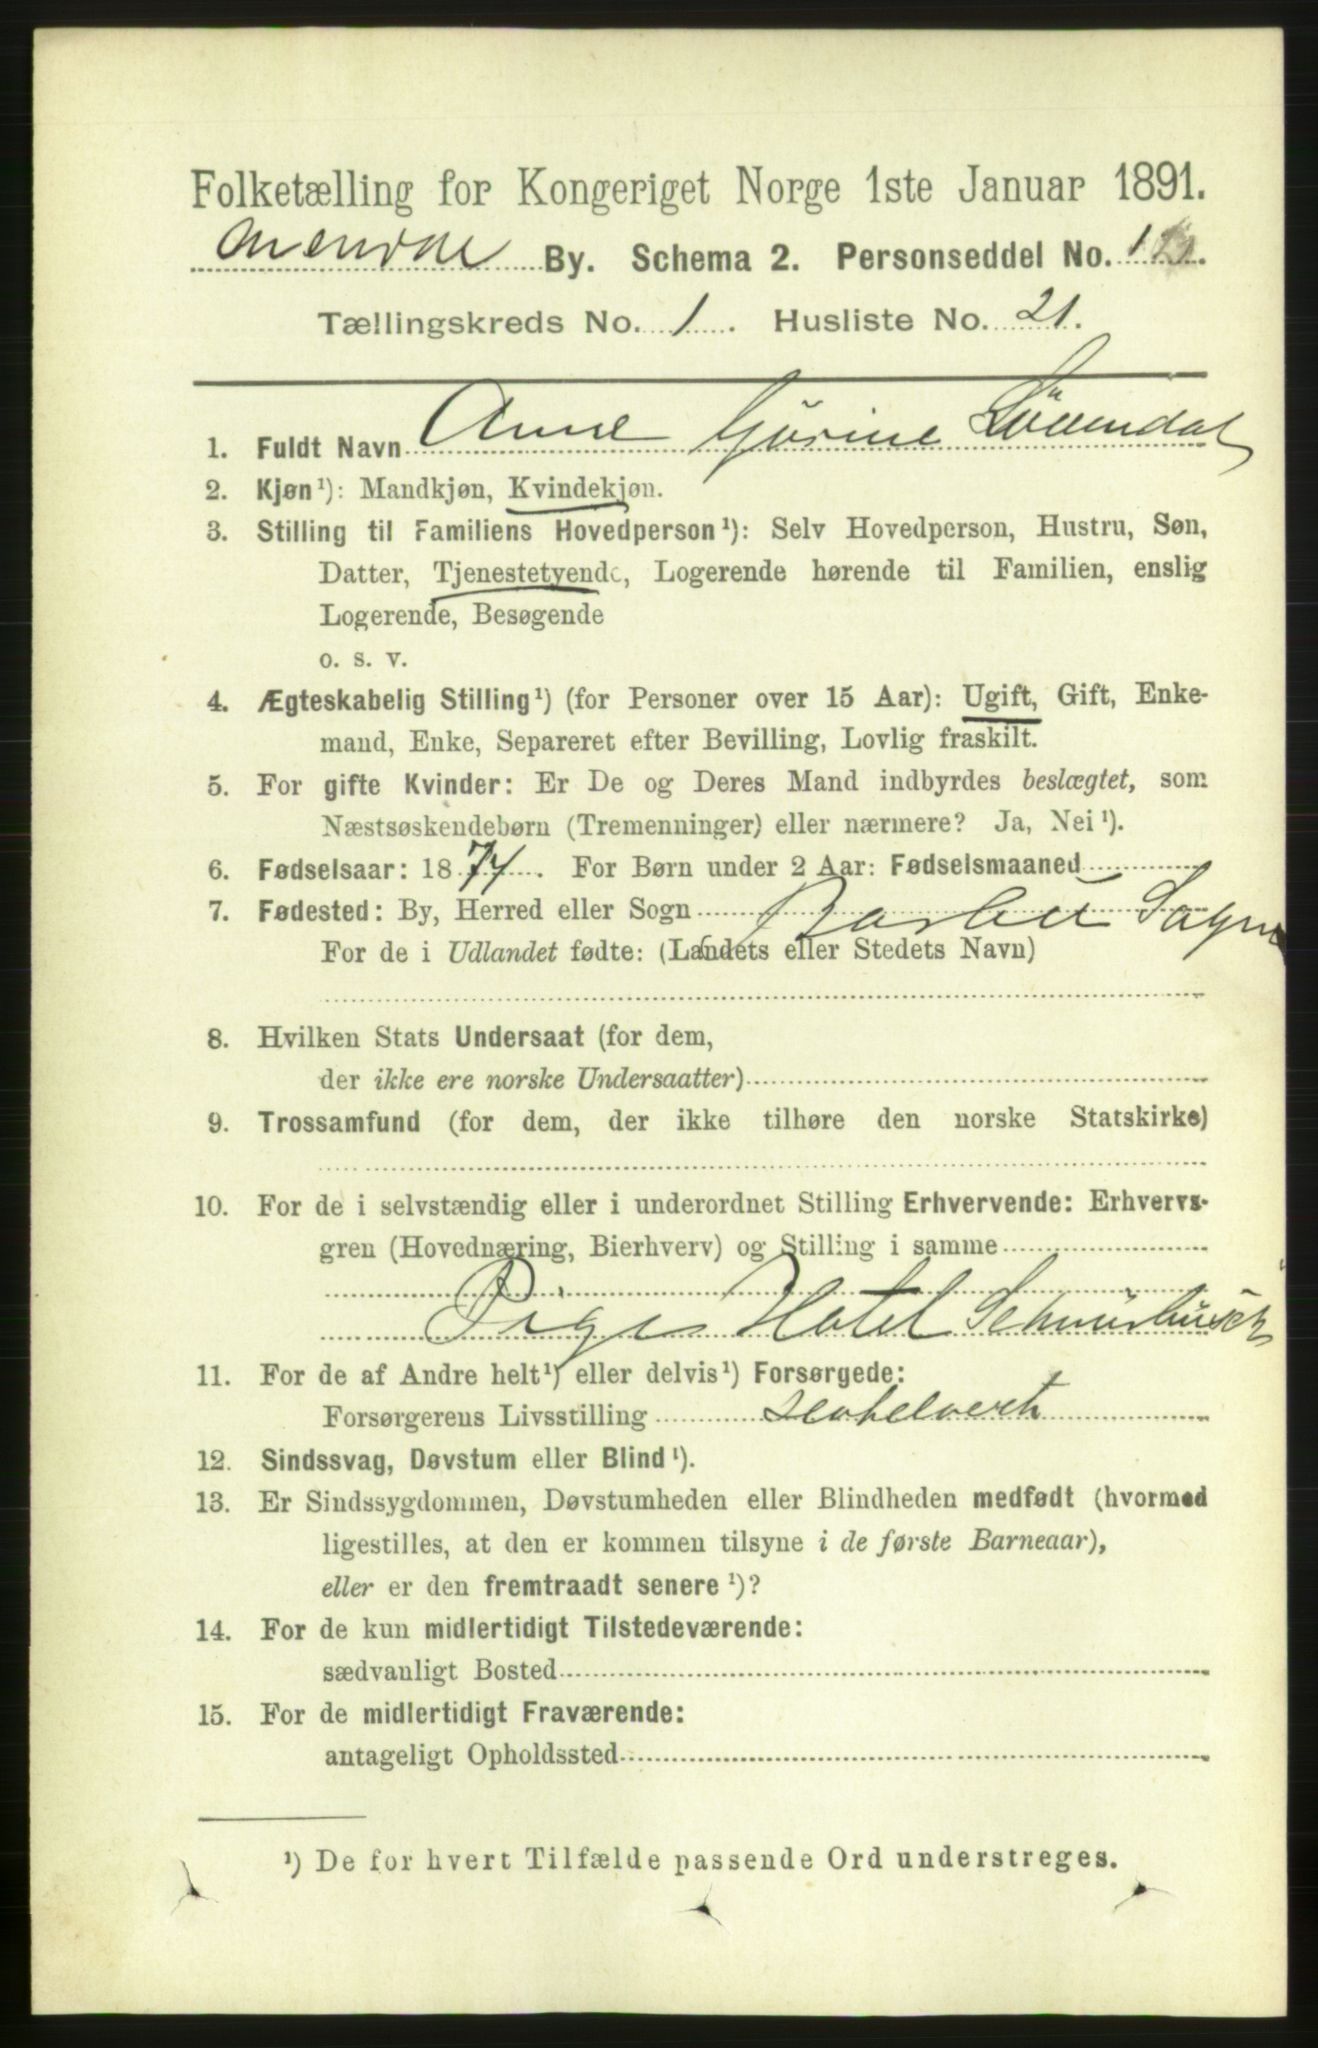 Folketælling for Kongeriget Norge 1ste Januar 1891.
Arendal By. Schema 2. Personseddel No.
Tællingskreds No. 1. Husliste No. 21.
1. Fuldt Navn Anne Gurine
2. Kjøn¹): Mandkjøn, Kvindekjøn.
3. Stilling til Familiens Hovedperson¹): Selv Hovedperson, Hustru, Søn,
Datter, Tjenestetyende, Logerende hørende til Familien, enslig
Logerende, Besøgende
o. s. v.
4. Ægteskabelig Stilling¹) (for Personer over 15 Aar): Ugift, Gift, Enke-
mand, Enke, Separeret efter Bevilling, Lovlig fraskilt.
5. For gifte Kvinder: Er De og Deres Mand indbyrdes beslægtet, som
Næstsøskendebørn (Tremenninger) eller nærmere? Ja, Nei¹).
6. Fødselsaar: 1874. For Børn under 2 Aar: Fødselsmaaned
7. Fødested: By, Herred eller Sogn Barbu Sogn
For de i Udlandet fødte: (Landets eller Stedets Navn)
8. Hvilken Stats Undersaat (for dem,
der ikke ere norske Undersaatter)
9. Trossamfund (for dem, der ikke tilhøre den norske Statskirke)
10. For de i selvstændig eller i underordnet Stilling Erhvervende: Erhvervs-
gren (Hovednæring, Bierhverv) og Stilling i samme
Pige Hotel Schnurbusch
11. For de af Andre helt¹) eller delvis¹) Forsørgede:
Forsørgerens Livsstilling Hotelvert
12. Sindssvag, Døvstum eller Blind¹).
13. Er Sindssygdommen, Døvstumheden eller Blindheden medfødt (hvormed
ligestilles, at den er kommen tilsyne i de første Barneaar),
eller er den fremtraadt senere¹)?
14. For de kun midlertidigt Tilstedeværende:
sædvanligt Bosted
15. For de midlertidigt Fraværende:
antageligt Opholdssted
¹) De for hvert Tilfælde passende Ord understreges.